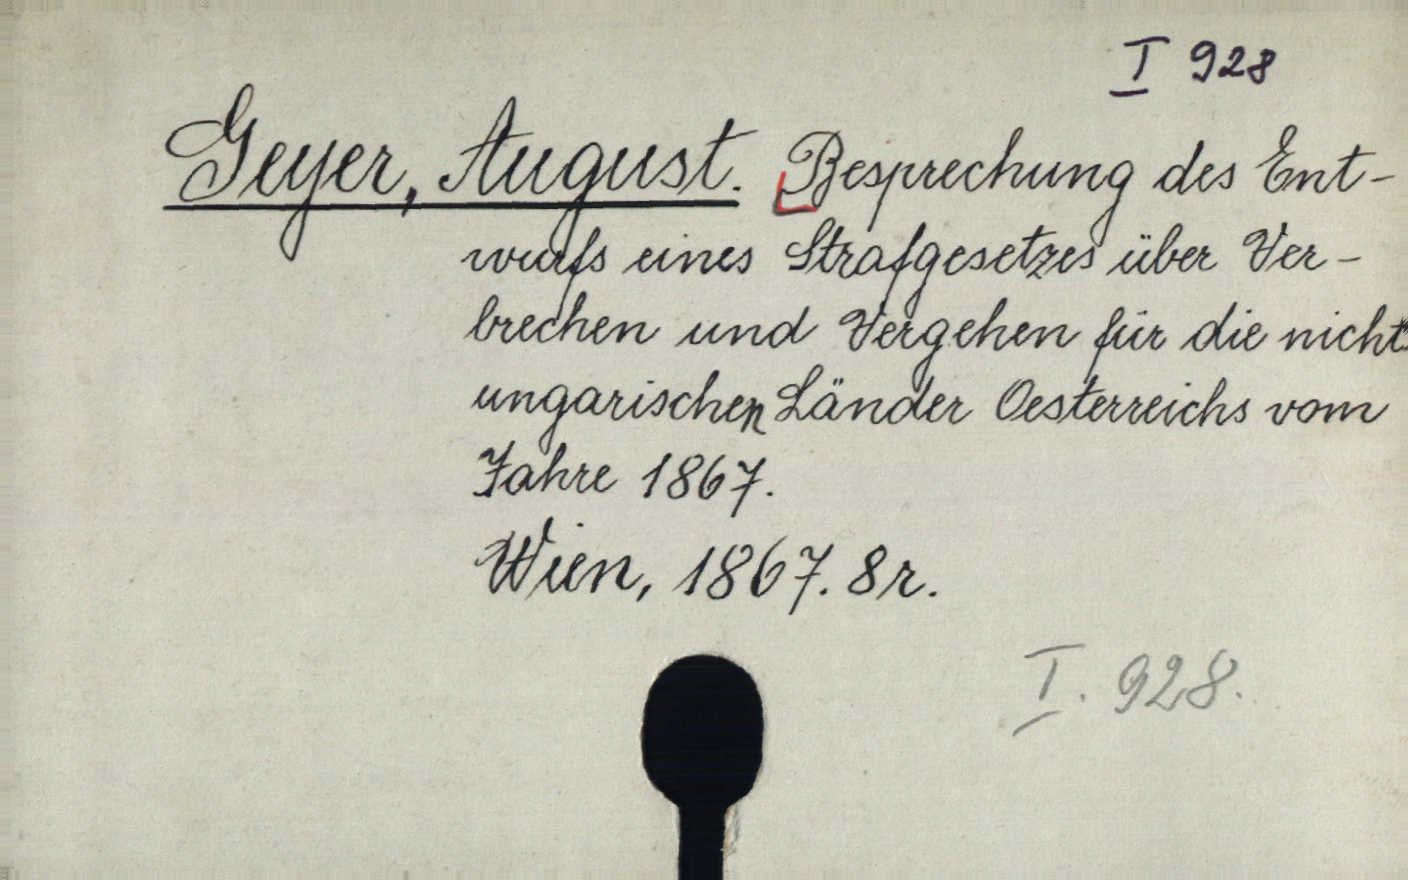 I 928
Geyer, August. Besprechung des Ent-
wurfs eines Strafgesetzes über Ver-
brechen und Vergehen für die nicht
ungarischen Länder Oesterreichs vom
Jahre 1867.
Wien, 1867. 8r.
I. 928.